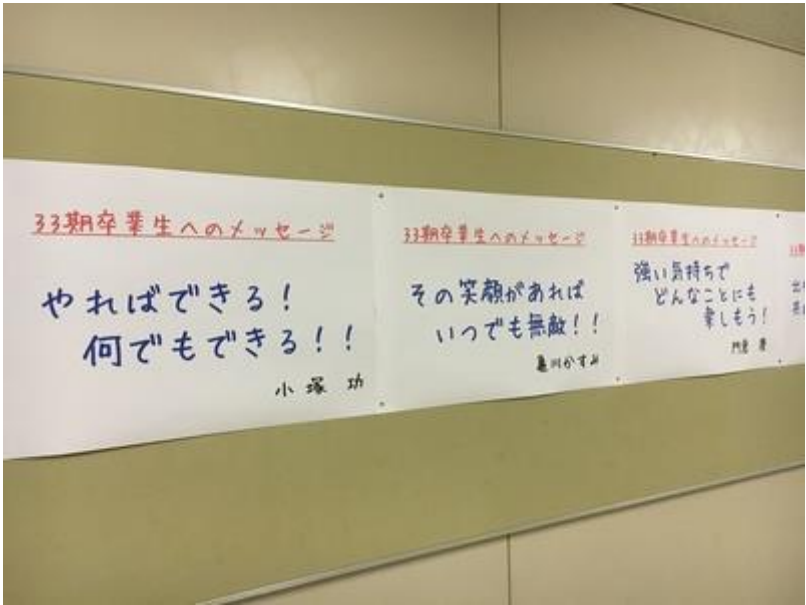 33期卒業生へのメッセージ
やればできる!
何でもできる!!
小塚 功
33期卒業生へのメッセージ
その笑顔があれば
いつでも無敵!!
亀川かすみ
33期卒業生へのメッセージ
強い気持ちで
どんなことにも
楽しもう!